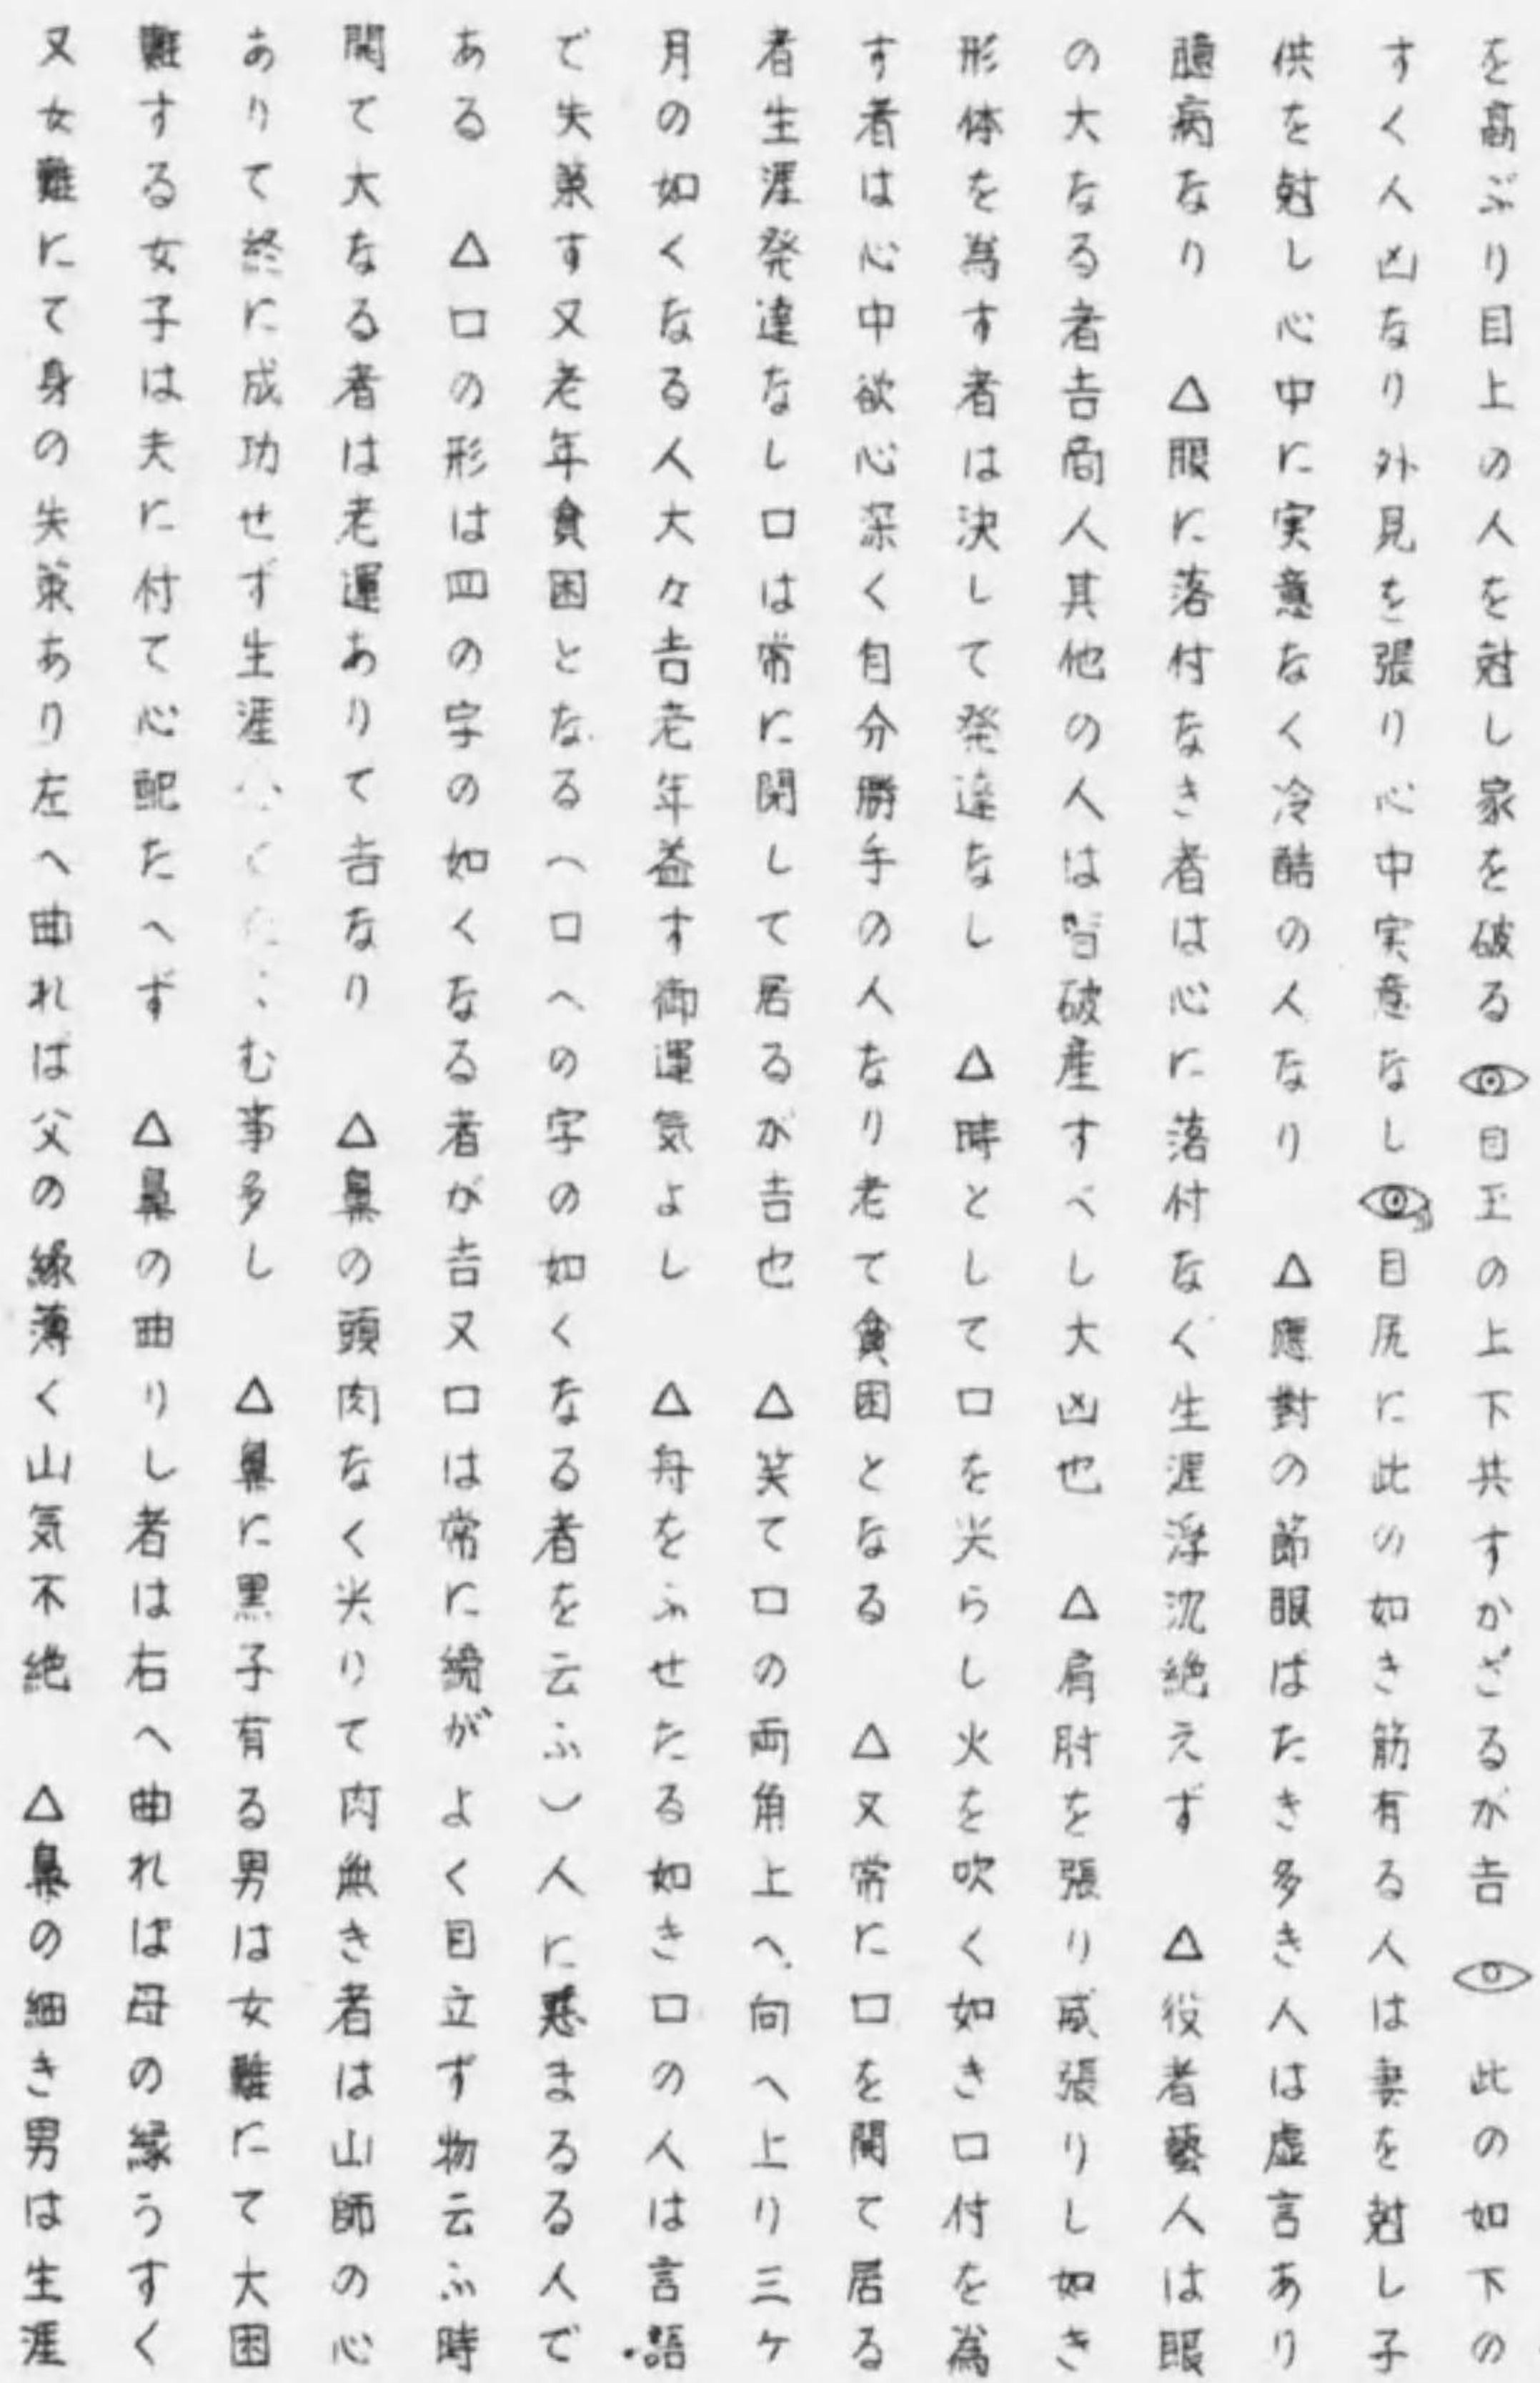 を高ぶり目上の人を尅し家を破る 目玉の上下共すかざるが吉 此の如下の
すく人凶なり外見を張り心中実意なし 目尻に此の如き筋有る人は妻を尅し子
供を尅し心中に実意なく冷酷の人なり △應對の節眼ばたき多き人は虚言あり
臆病なり △眼に落付なき者は心に落付なく生涯浮沈絶えず △役者藝人は眼
の大なる者吉商人其他の人は皆破産すべし大凶也 △肩肘を張り威張りし如き
形体を為す者は決して発達なし △時として口を尖らし火を吹く如き口付を為
す者は心中欲心深く自分勝手の人なり老て貧困となる △又常に口を開て居る
者生涯発達なし口は常に閉して居るが吉也 △笑て口の両角上へ向へ上り三ケ
月の如くなる人大々吉老年益す御運気よし △舟をふせたる如き口の人は言語
で失策す又老年貧困となる(口への字の如くなる者を云ふ)人に惑まるる人で
ある △口の形は四の字の如くなる者が吉又口は常に締がよく目立ず物云ふ時
開て大なる者は老運ありて吉なり △鼻の頭肉なく尖りて肉無き者は山師の心
ありて終に成功せず生涯む事多し △鼻に黒子有る男は女難にて大困
難する女子は夫に付て心配たへず △鼻の曲りし者は右へ曲れば母の縁うすく
又女難にて身の失策あり左へ曲れば父の縁薄く山気不絶 △鼻の細き男は生涯